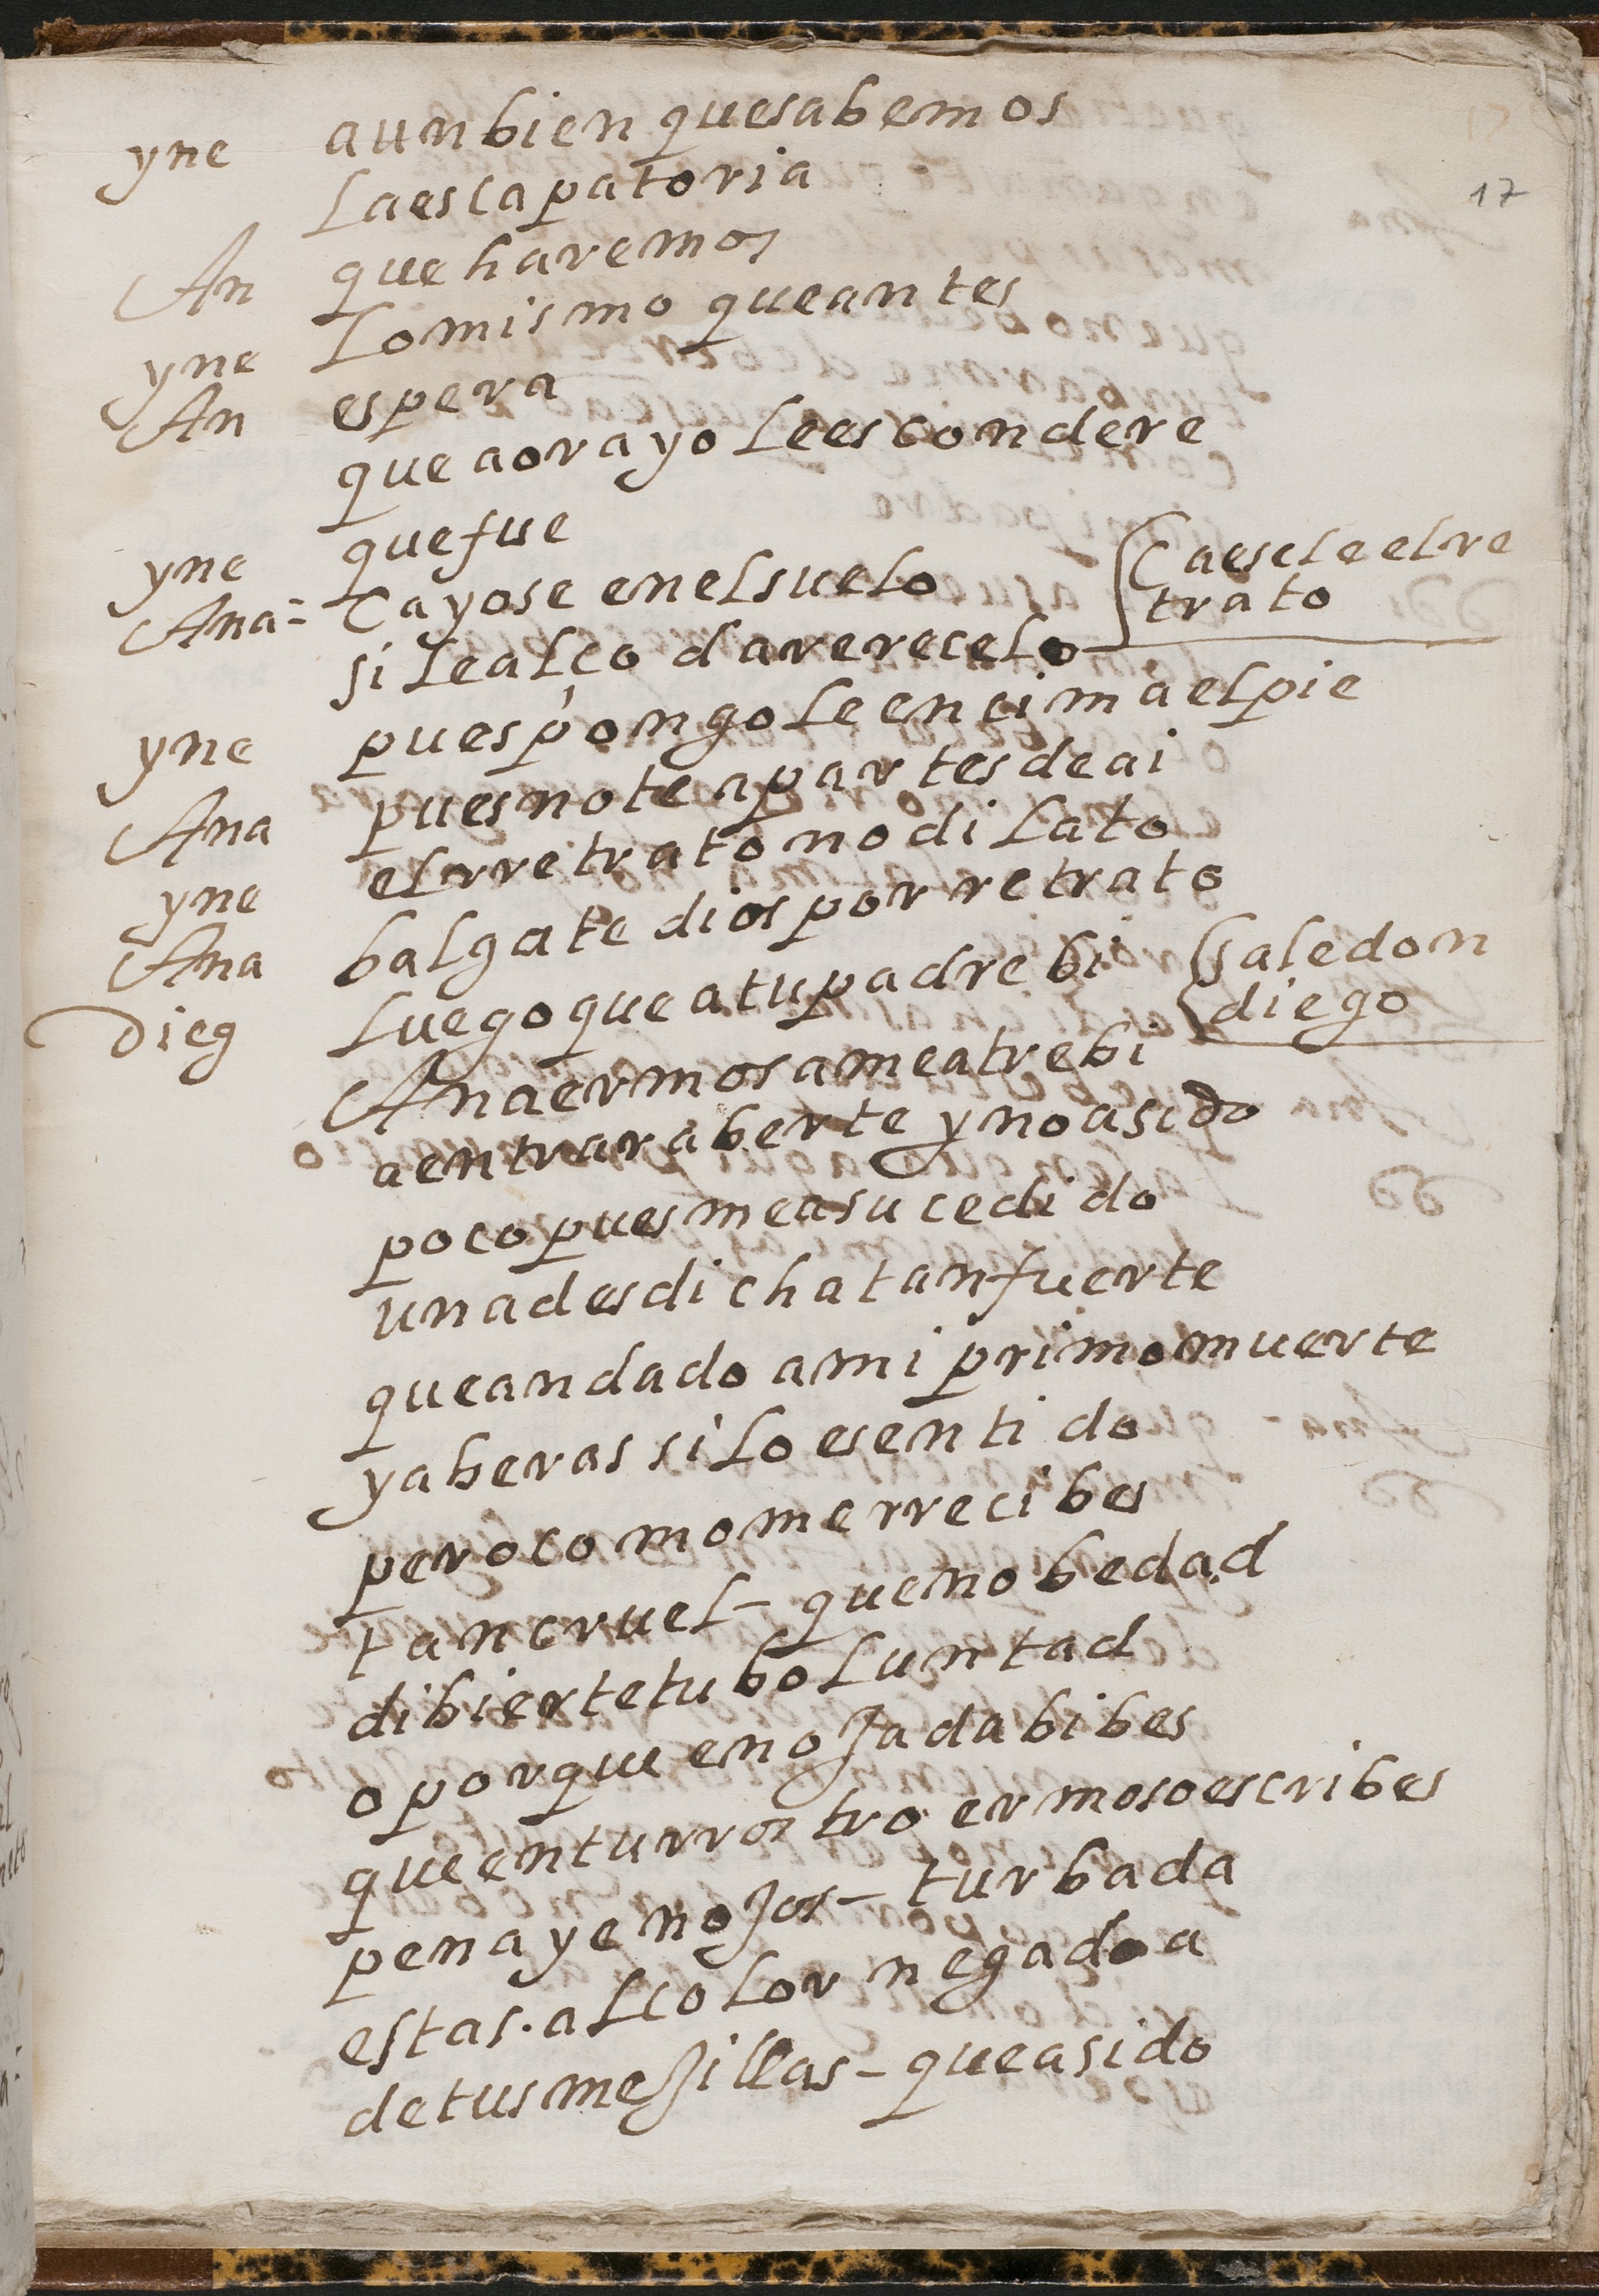 17
yne aun bien que sabemos
la escapatoria
An que haremos
yne lo mismo que antes
An espera
que aora yo le escondere
yne que fue
Ana- Cayose en el suelo
Caesele el re
trato
si le alço dare recelo
yne pues pongole encima el pie
Ana pues no te apartes de ai
yne el rretrato no dilato
Ana balgate dios por retrato
Sale don
diego
Dieg luego que a tu padre bi
Ana ermosa me atrebi
a entrar a berte y no a sido
poco pues me a sucedido
una desdicha tan fuerte
que an dado a mi primo muerte
ya beras si lo e sentido
pero como me rrecibes
tan cruel - que nobedad
dibierte tu boluntad
o porque enojada bibes
que en tu rrostro ermoso escribes
pena y enojos - turbada
estas. al color negado a
de tus mejillas - que a sido